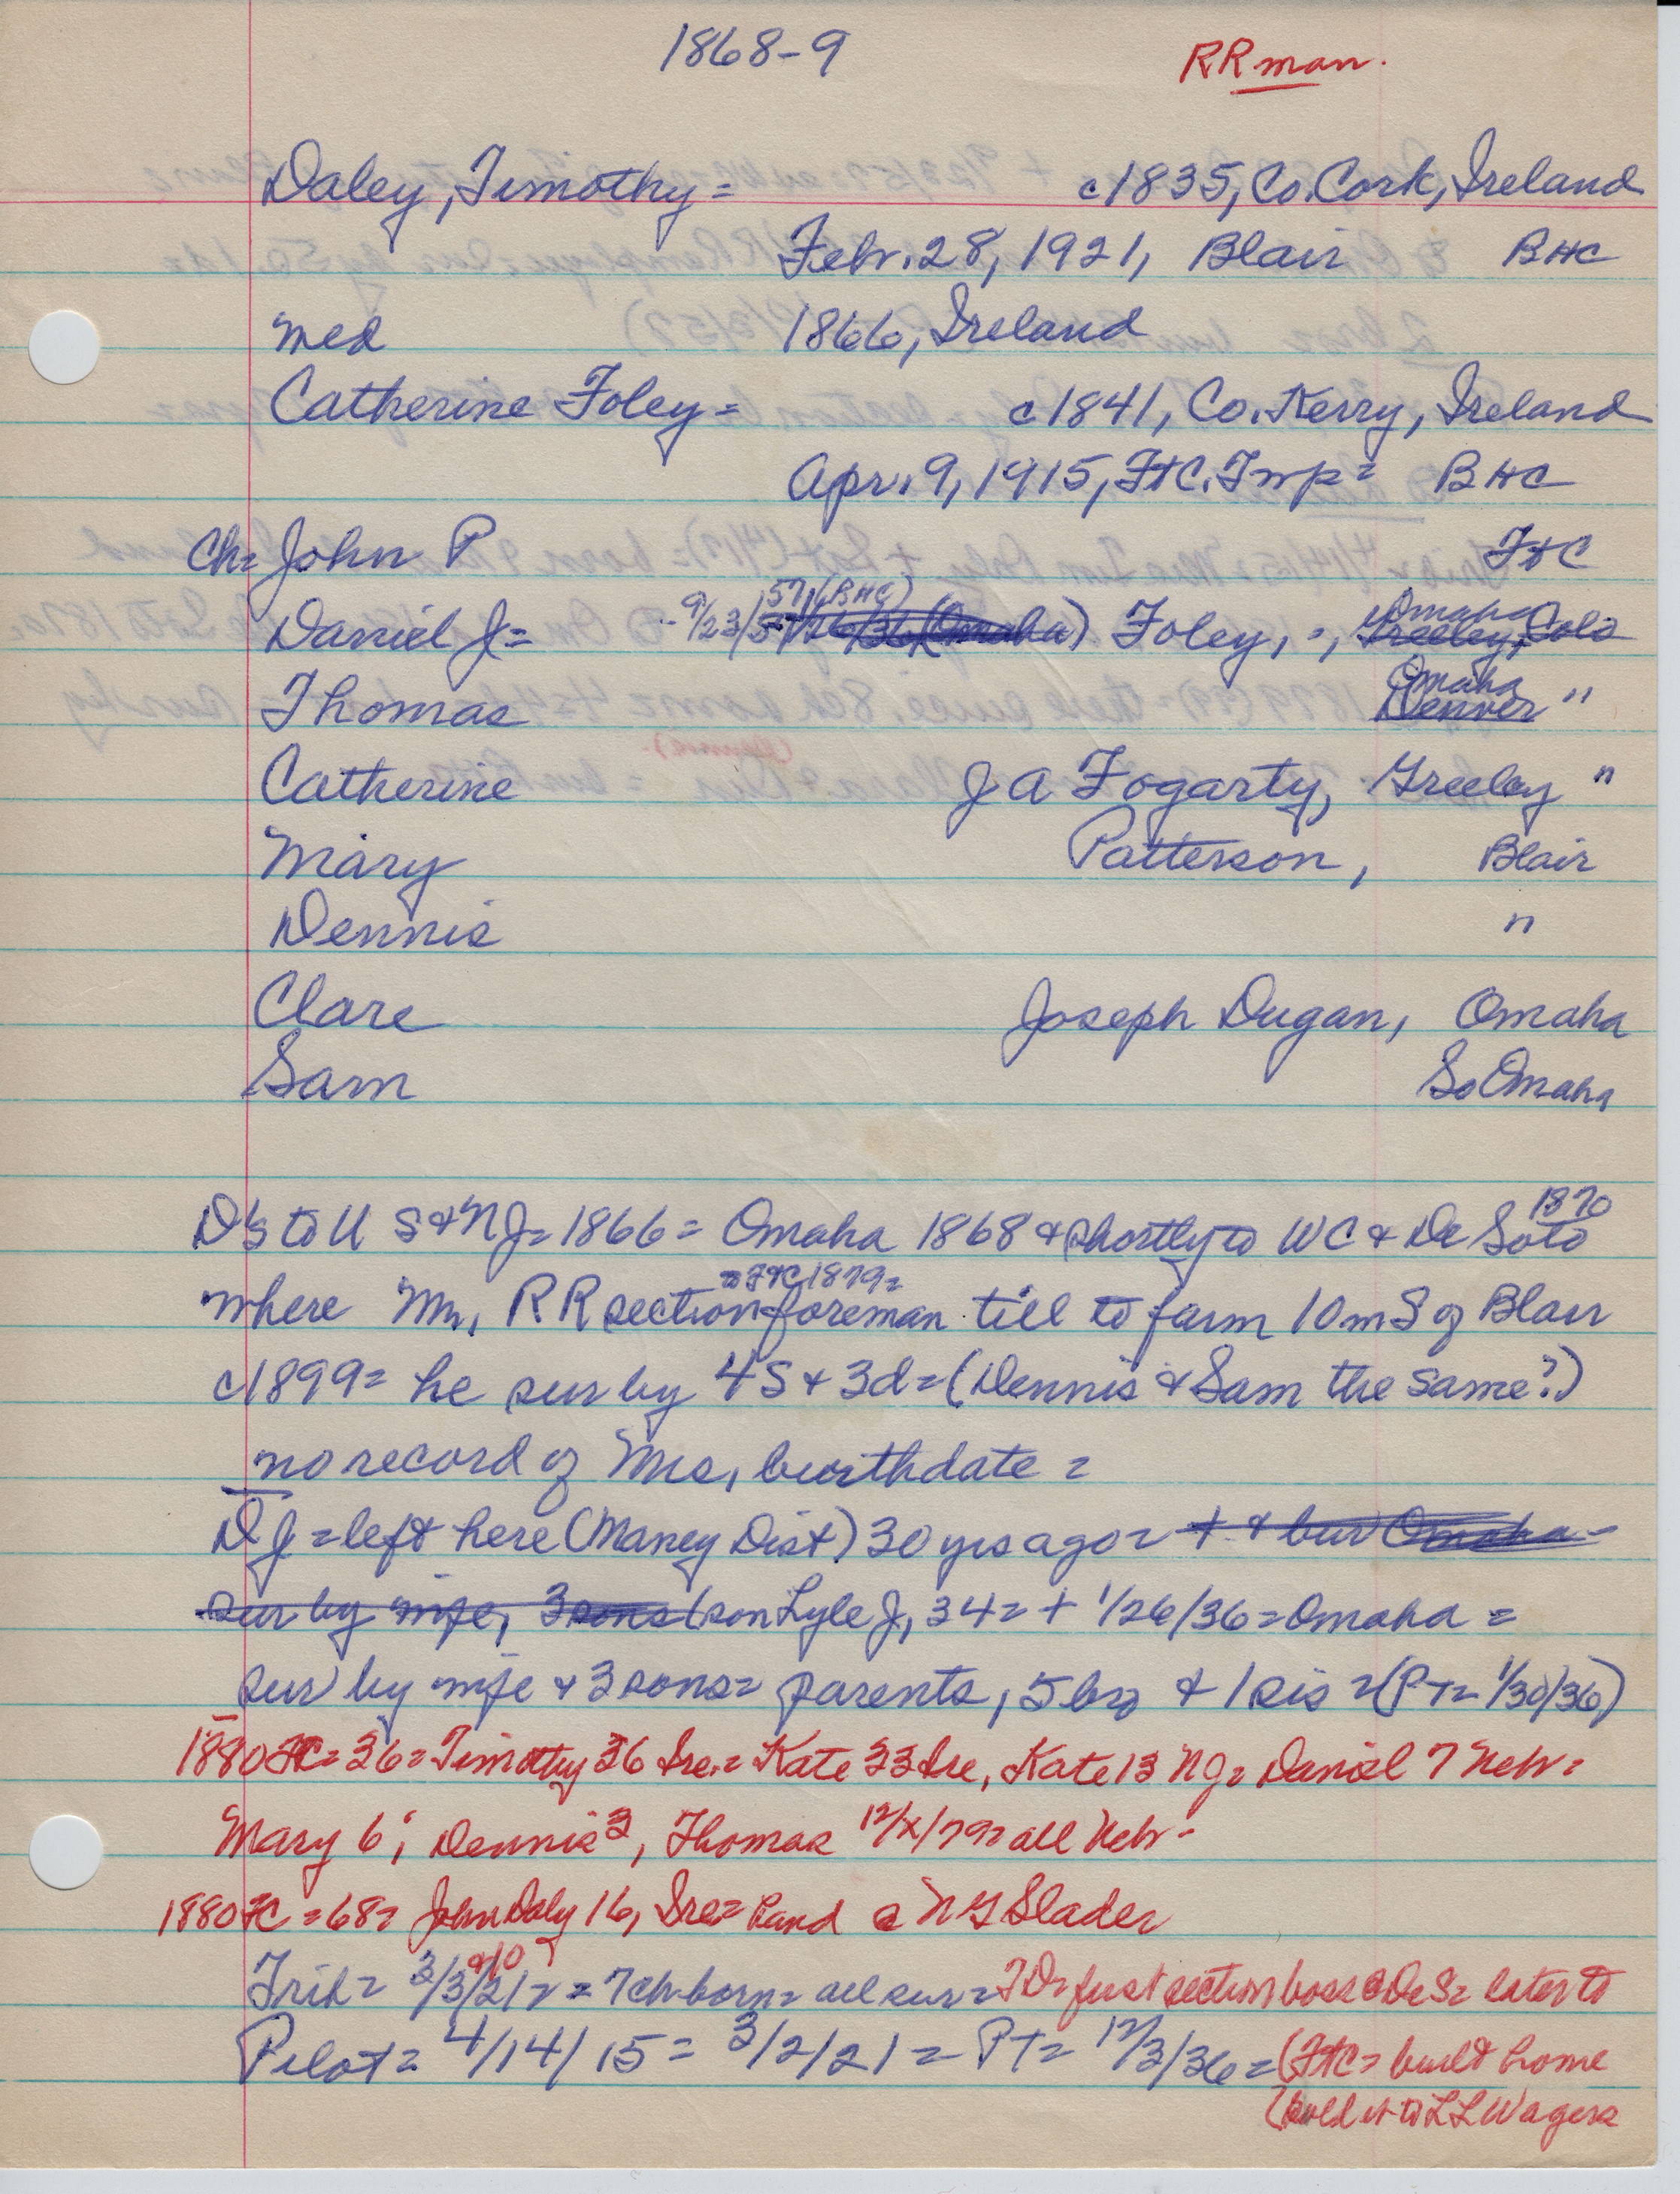 1868-9 RR man.
Daley, Timothy = c1835, Co. Cork, Ireland
Febr. 28, 1921, Blair BHC
med 1866, Ireland
Catherine Foley = c1841, Co. Kerry, Ireland
Apr. 9, 1915, FtC. Twp = BHC
Ch = John P FtC
57 (BHC) Omaha
Daniel J = 9/23/ Foley, " , Greeley, Colo
Omaha
Thomas Denver "
Catherine J A Fogarty, Greeley "
Mary Patterson, Blair
Dennis "
Clare Joseph Dugan, Omaha
Sam So Omaha
1870
D's to U S & NJ = 1866 = Omaha 1868 & shortly to WC & De Soto
= FtC 1879 =
where Mr, RR section foreman till to farm 10 m S of Blair
c1899 = he sur by 4 S & 3 d = (Dennis & Sam the same?)
no record of Mrs, birthdate =
DJ = left here (Maney Dist) 30 yrs ago = + & bur Omaha -
sur by wife, 3 sons (son Lyle J, 34 = + 1/26/36 = Omaha =
sur by wife & 3 sons = parents, 5 bro & 1 sis = (PT = 1/30/36)
1880 FC = 36 = Timothy 36 Ire. = Kate 33 Ire, Kate 13 NJ = Daniel 7 Nebr =
Mary 6; Dennis 3, Thomas 12/x/79 = all Nebr -
1880 FC = 68 = John Daly 16, Ire = hand @ Slader
Trib = 3/3/21 = = 7 ch born = all sur = TD = first section boss @ DeS = later to
Pilot = 4/14/15 = 3/2/21 = PT = 12/3/36 = (FtC = built home
(sold it to L L Wagers